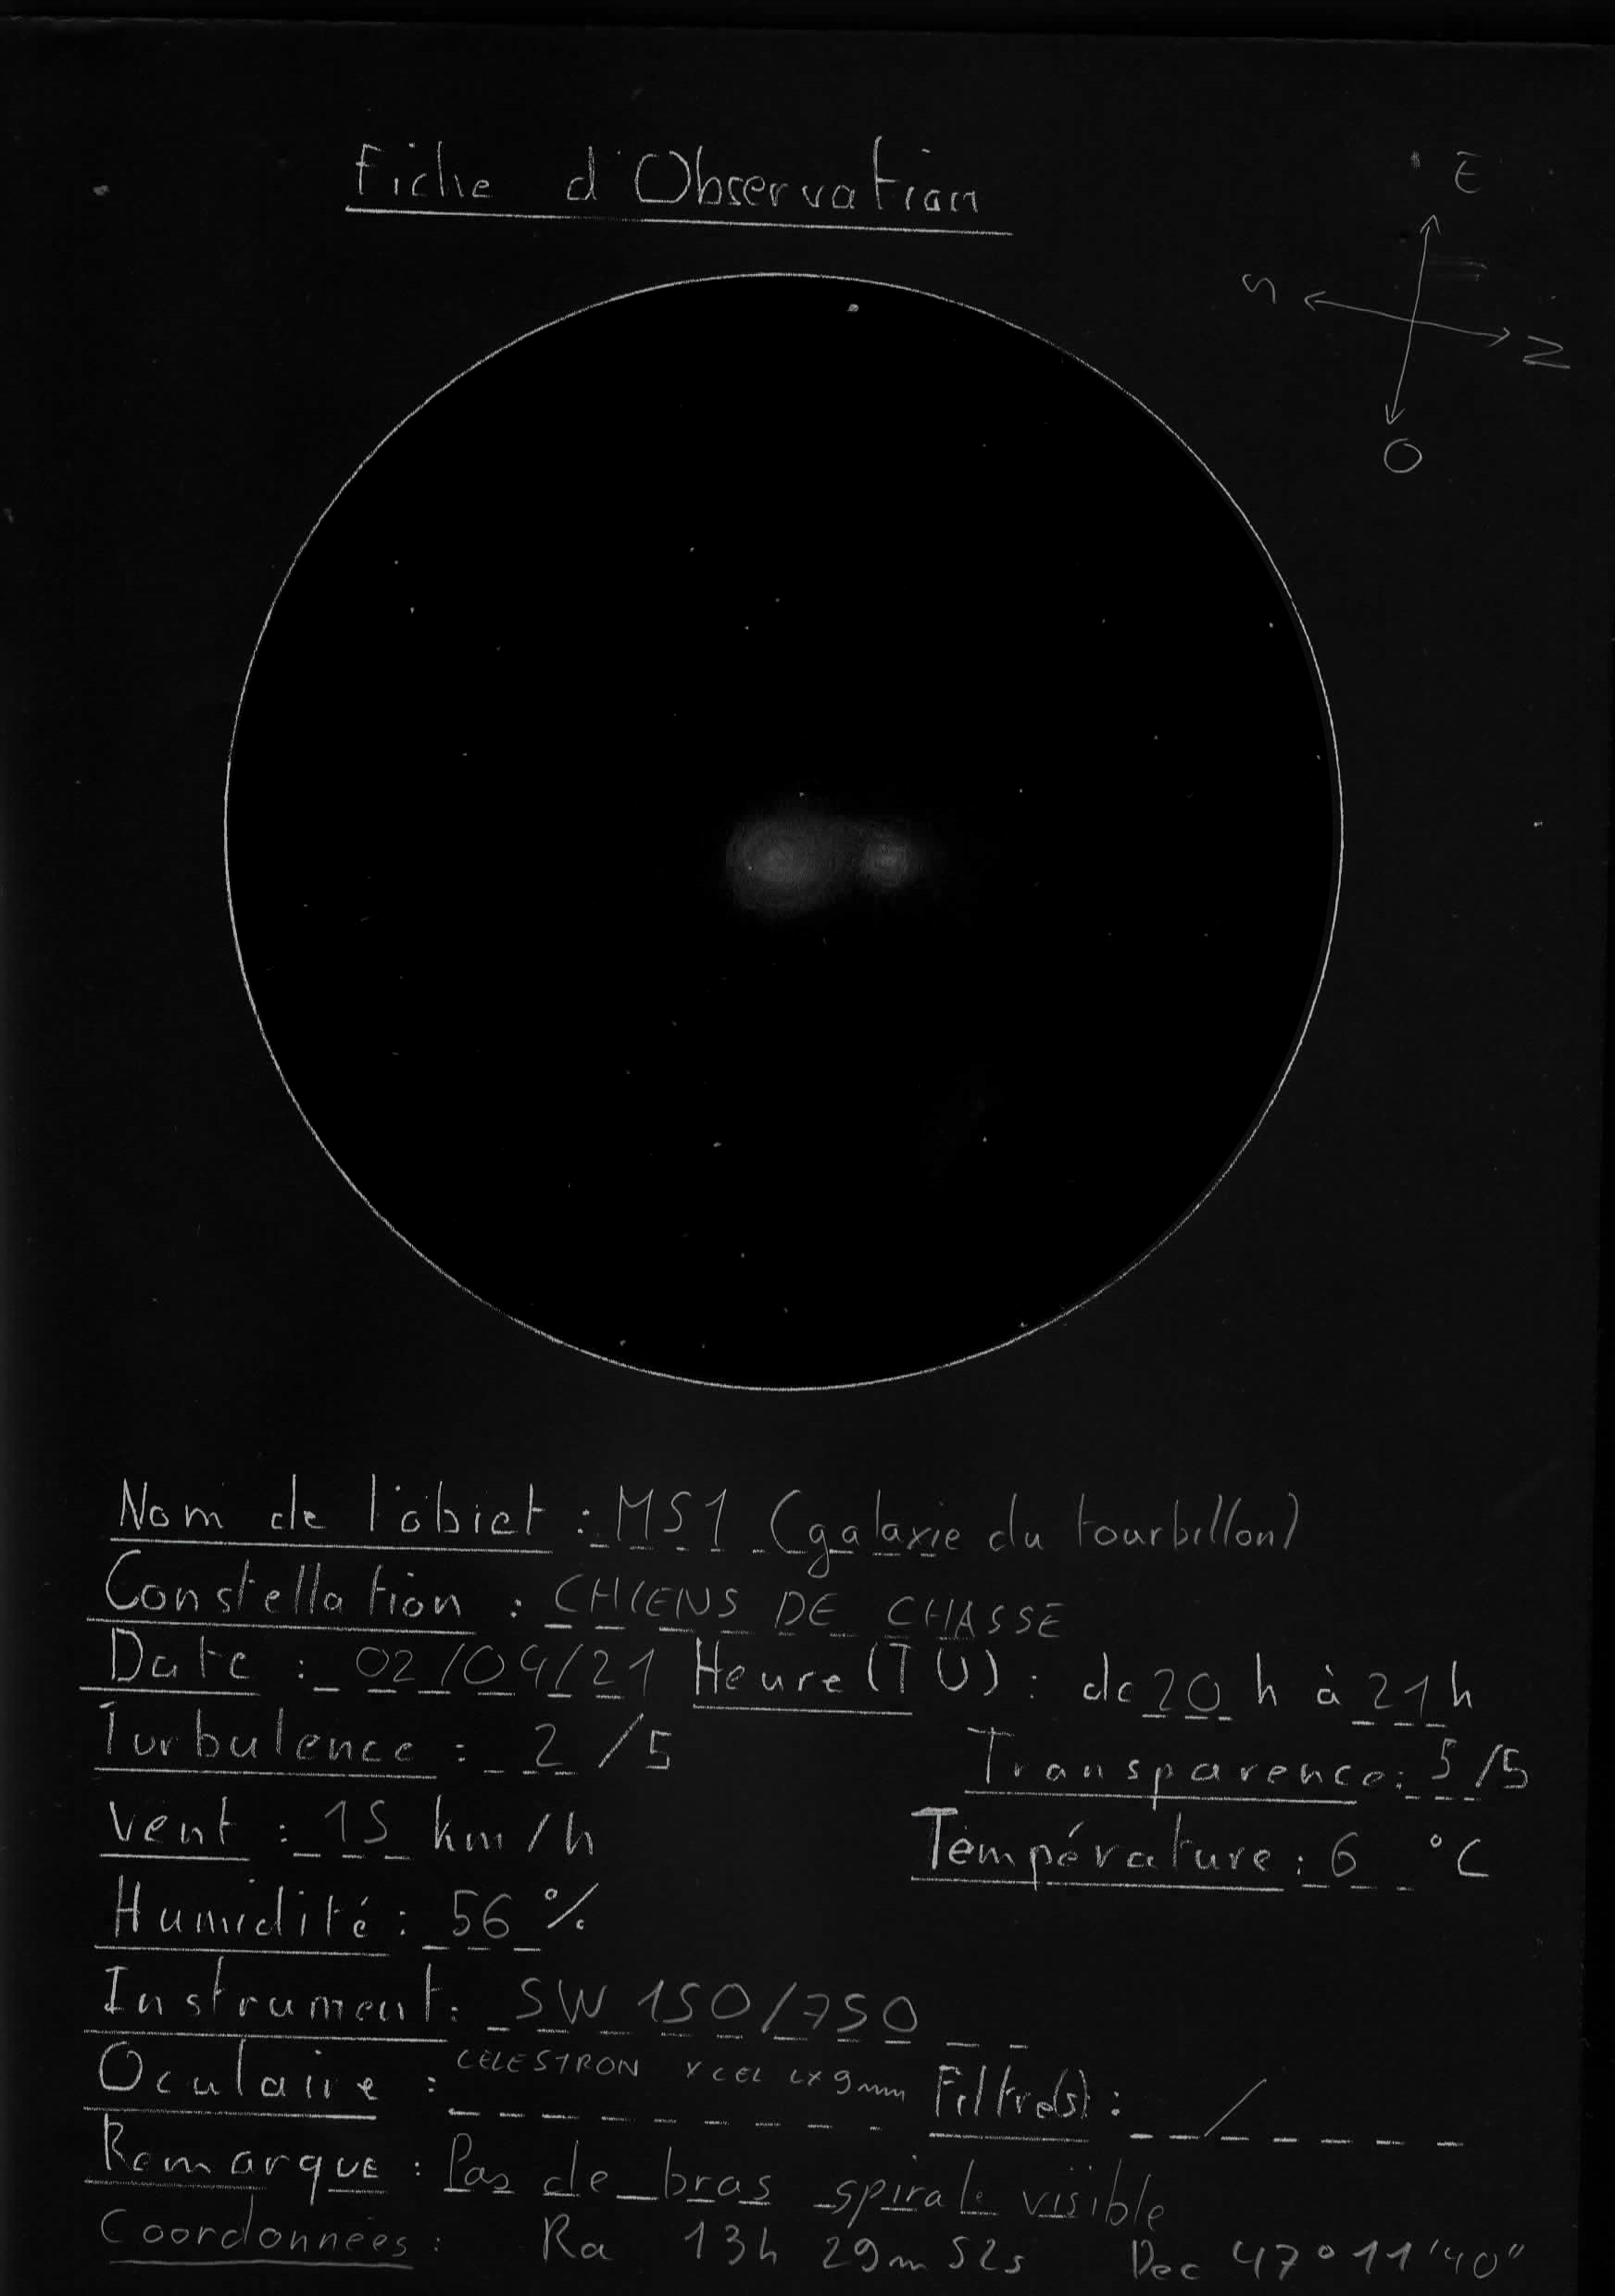 Fiche d'Observation
E
S
N
O
Nom de l'objet : M51 (galaxie du tourbillon)
Constellation : CHIENS DE CHASSE
Date : 02/04/21 Heure (TU) : de 20 h à 21 h
Turbulence : 2 /5 Transparence : 5 /5
Vent : 15 km/h Température : 6 °C
Humidité : 56 %
Instrument : SW 150/750
Oculaire : CELESTRON XCEL LX 9mm Filtre(s) : /
Remarque : Pas de bras spirale visible
Coordonnées : Ra 13h 29m 52s Dec 47°11'40"